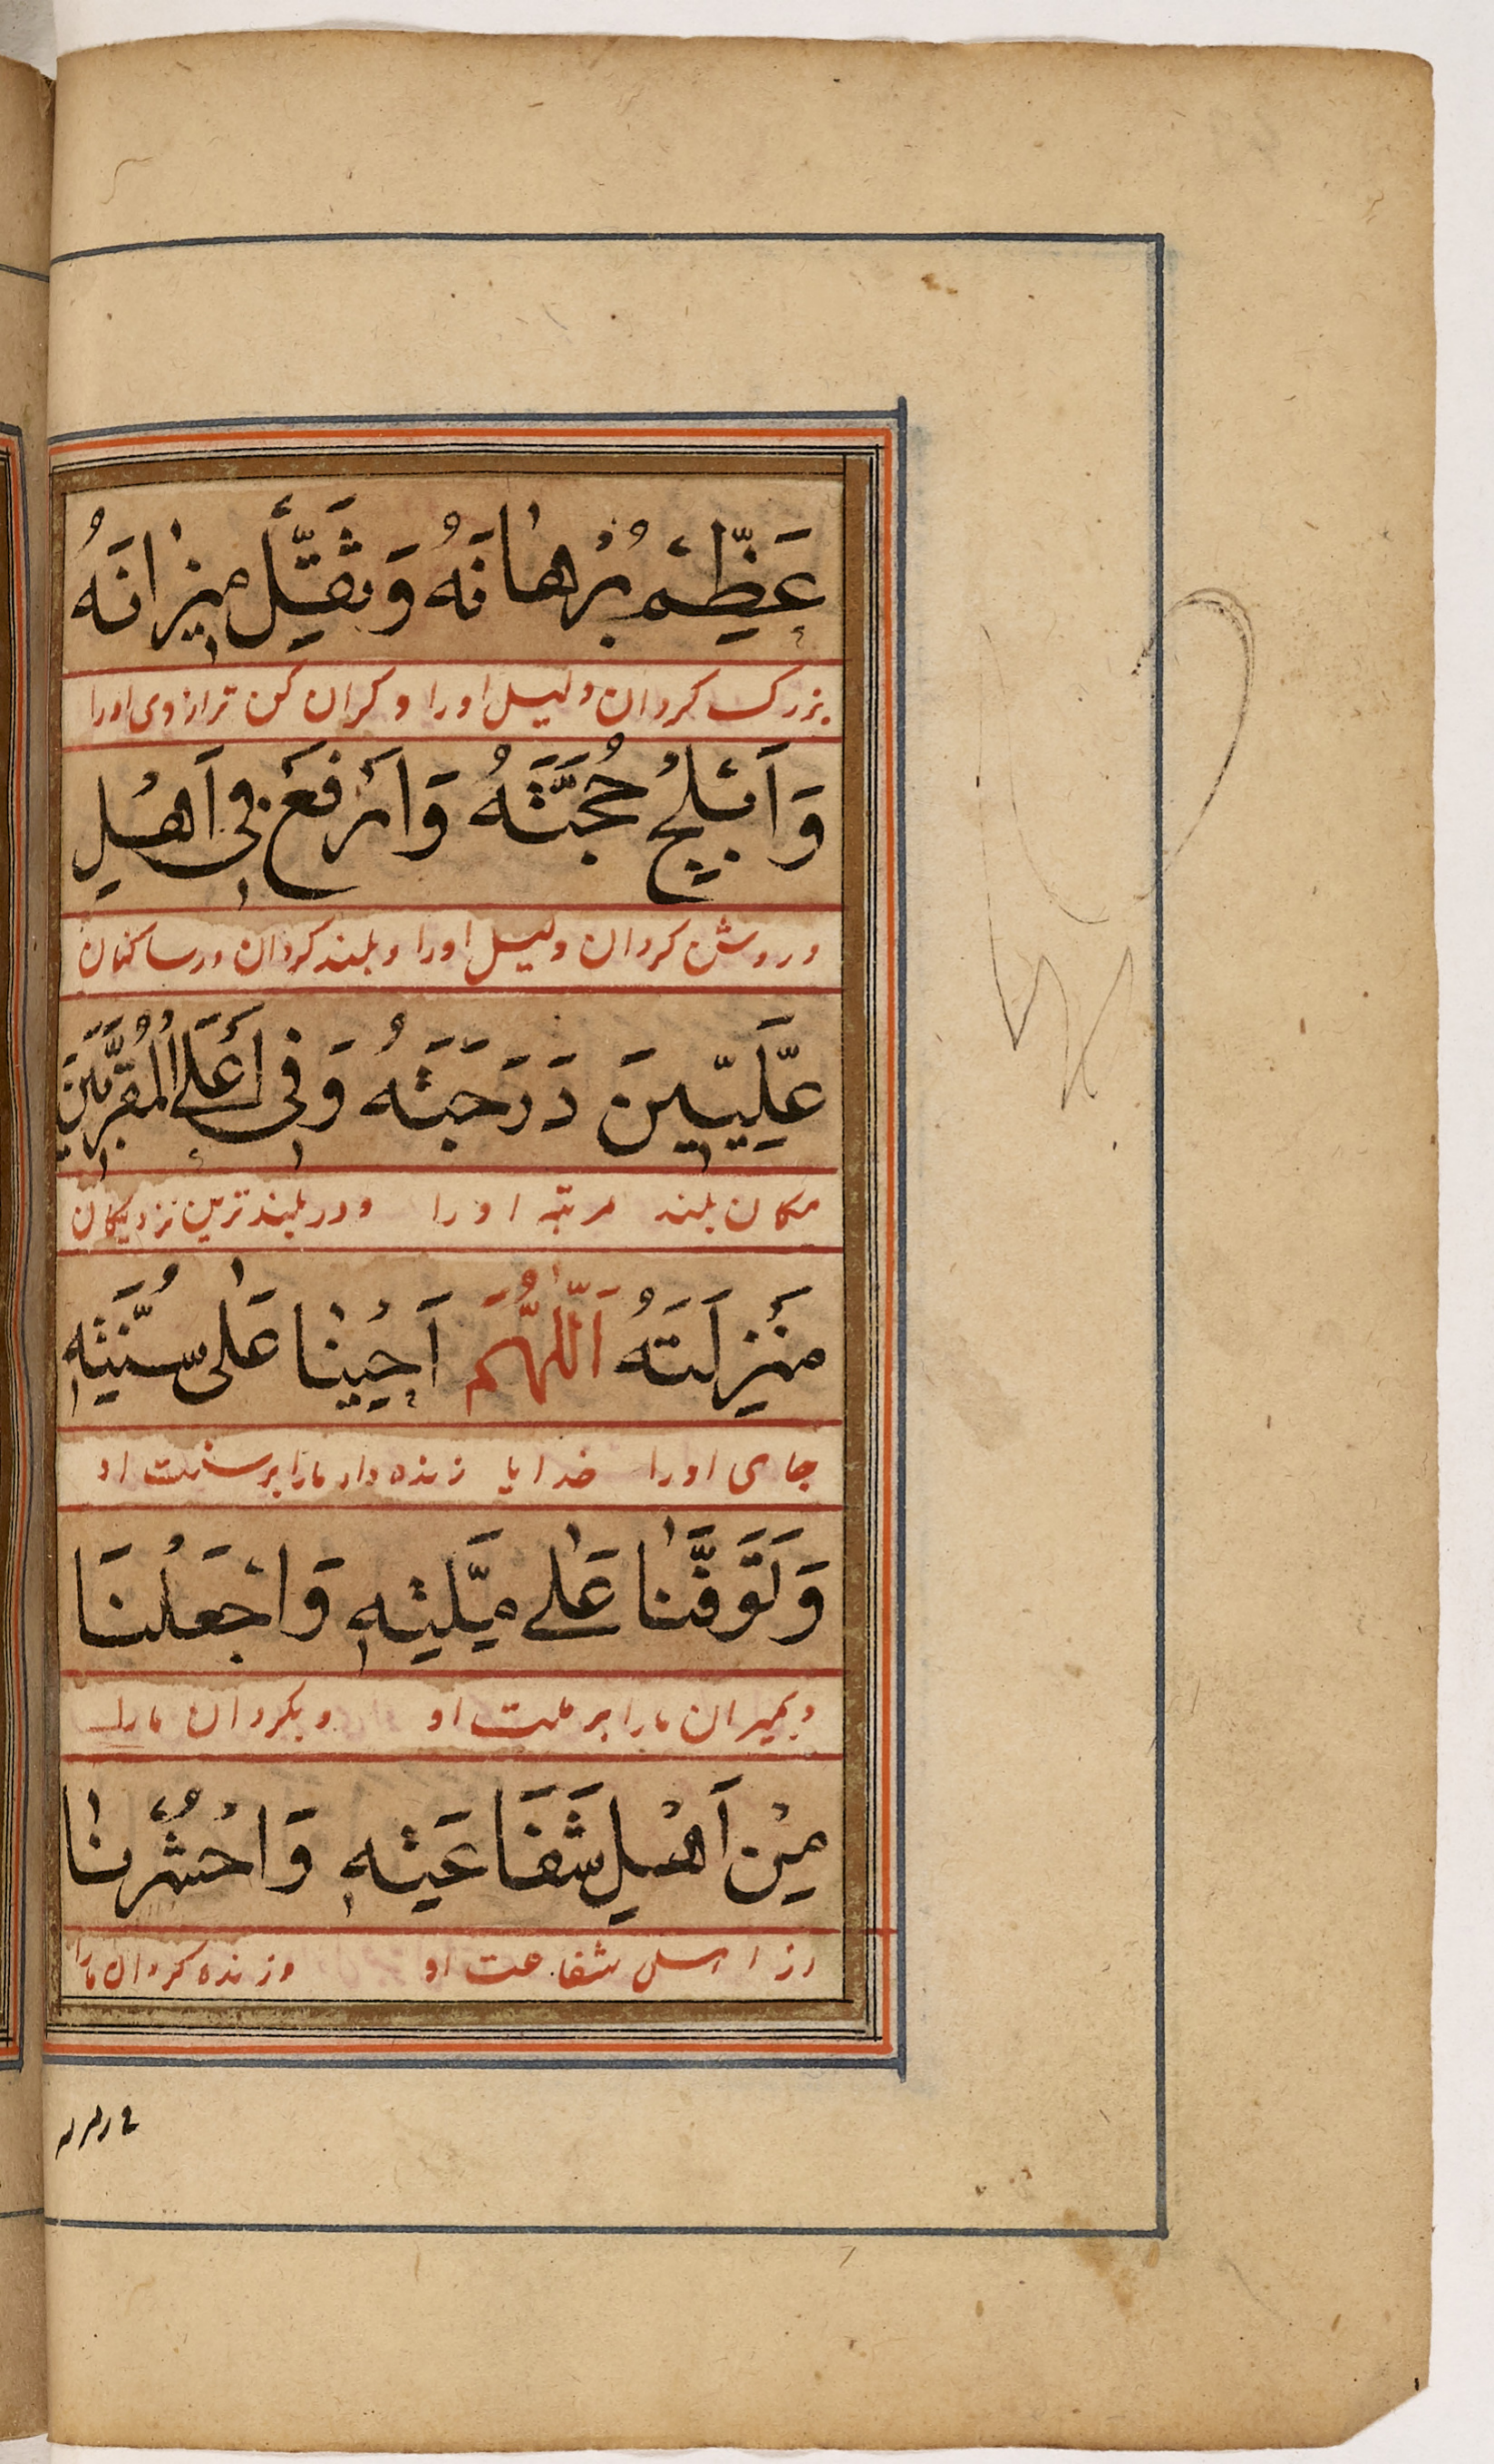 عَظِّمْ بُرْهَانَهُ وَثَقِّلْ مِيزَانَهُ
بزرک کردان دلیل اورا و کران کن ترازوی اورا
وَاَبْلِجْ حُجَّتَهُ وَارْفَعْ فِي اَهْلِ
و روشن کردان دلیل اورا و بلند کردان در ساکنان
عِلِّيِّينَ دَرَجَتَهُ وَفِي اَعْلَى الْمُقَرَّبِينَ
مکان بلند مرتبه اورا و در بلندترین نزدیکان
مَنْزِلَتَهُ اَللّٰهُمَّ اَحْيِنَا عَلٰى سُنَّتِهِ
جای اورا خدایا زنده دار مارا بر سنت او
وَتَوَفَّنَا عَلٰى مِلَّتِهِ وَاجْعَلْنَا
و بمیران مارا بر ملت او و بکردان مارا
مِنْ اَهْلِ شَفَاعَتِهِ وَاحْشُرْنَا
از اهل شفاعت او و زنده کردان مارا
في زمرته